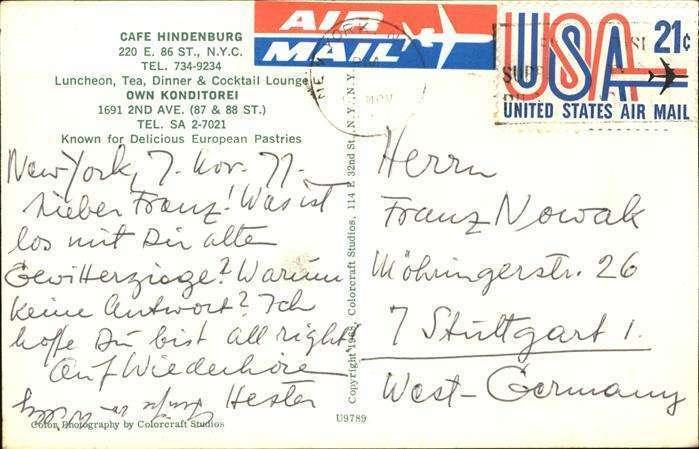 CAFE HINDENBURG
220 E. 86 ST., N.Y.C.
TEL. 734-9234
Luncheon, Tea, Dinner & Cocktail Lounge
OWN KONDITOREI
1691 2ND AVE. (87 & 88 ST.)
TEL. SA 2-7021
Known for Delicious European Pastries
AIR
MAIL
NEW YORK
USA 21c
UNITED STATES AIR MAIL
New York, 7. Nov. 77.
Lieber Franz! Was ist
los mit Dir alten
Gewitterziege? Warum
keine Antwort? Ich
hoffe Du bist all right
Auf Wiederhören
Hester
Color Photography by Colorcraft Studios
Copyright 1968, Colorcraft Studios, 114 E 32nd St., N.Y., N.Y.
U9789
Herrn
Franz Nowak
Möhringerstr. 26
7 Stuttgart 1.
West-Germany